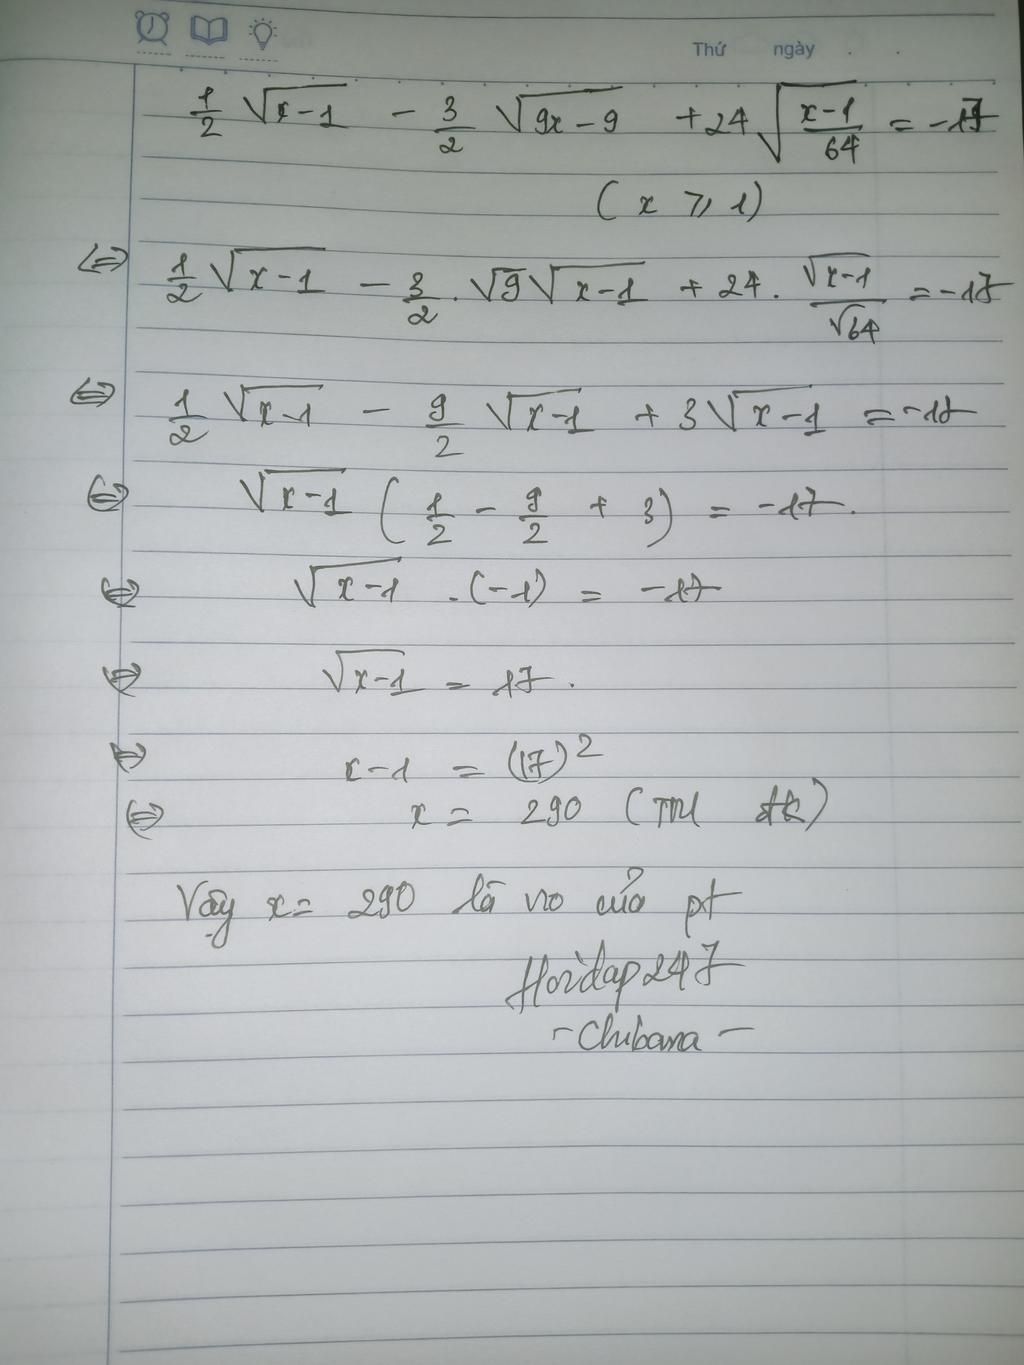 Thứ ngày . .
1/2 √(x-1) - 3/2 √(9x-9) + 24 √((x-1)/64) = -17
(x ⩾ 1)
⇔ 1/2 √(x-1) - 3/2 . √9 √(x-1) + 24 . √(x-1)/√64 = -17
⇔ 1/2 √(x-1) - 9/2 √(x-1) + 3√(x-1) = -17
⇔ √(x-1) (1/2 - 9/2 + 3) = -17.
⇔ √(x-1) . (-1) = -17
⇔ √(x-1) = 17.
⇔ x-1 = (17)²
⇔ x = 290 (TM đk)
Vậy x = 290 là no của pt
Hoidap247
- Chibana -